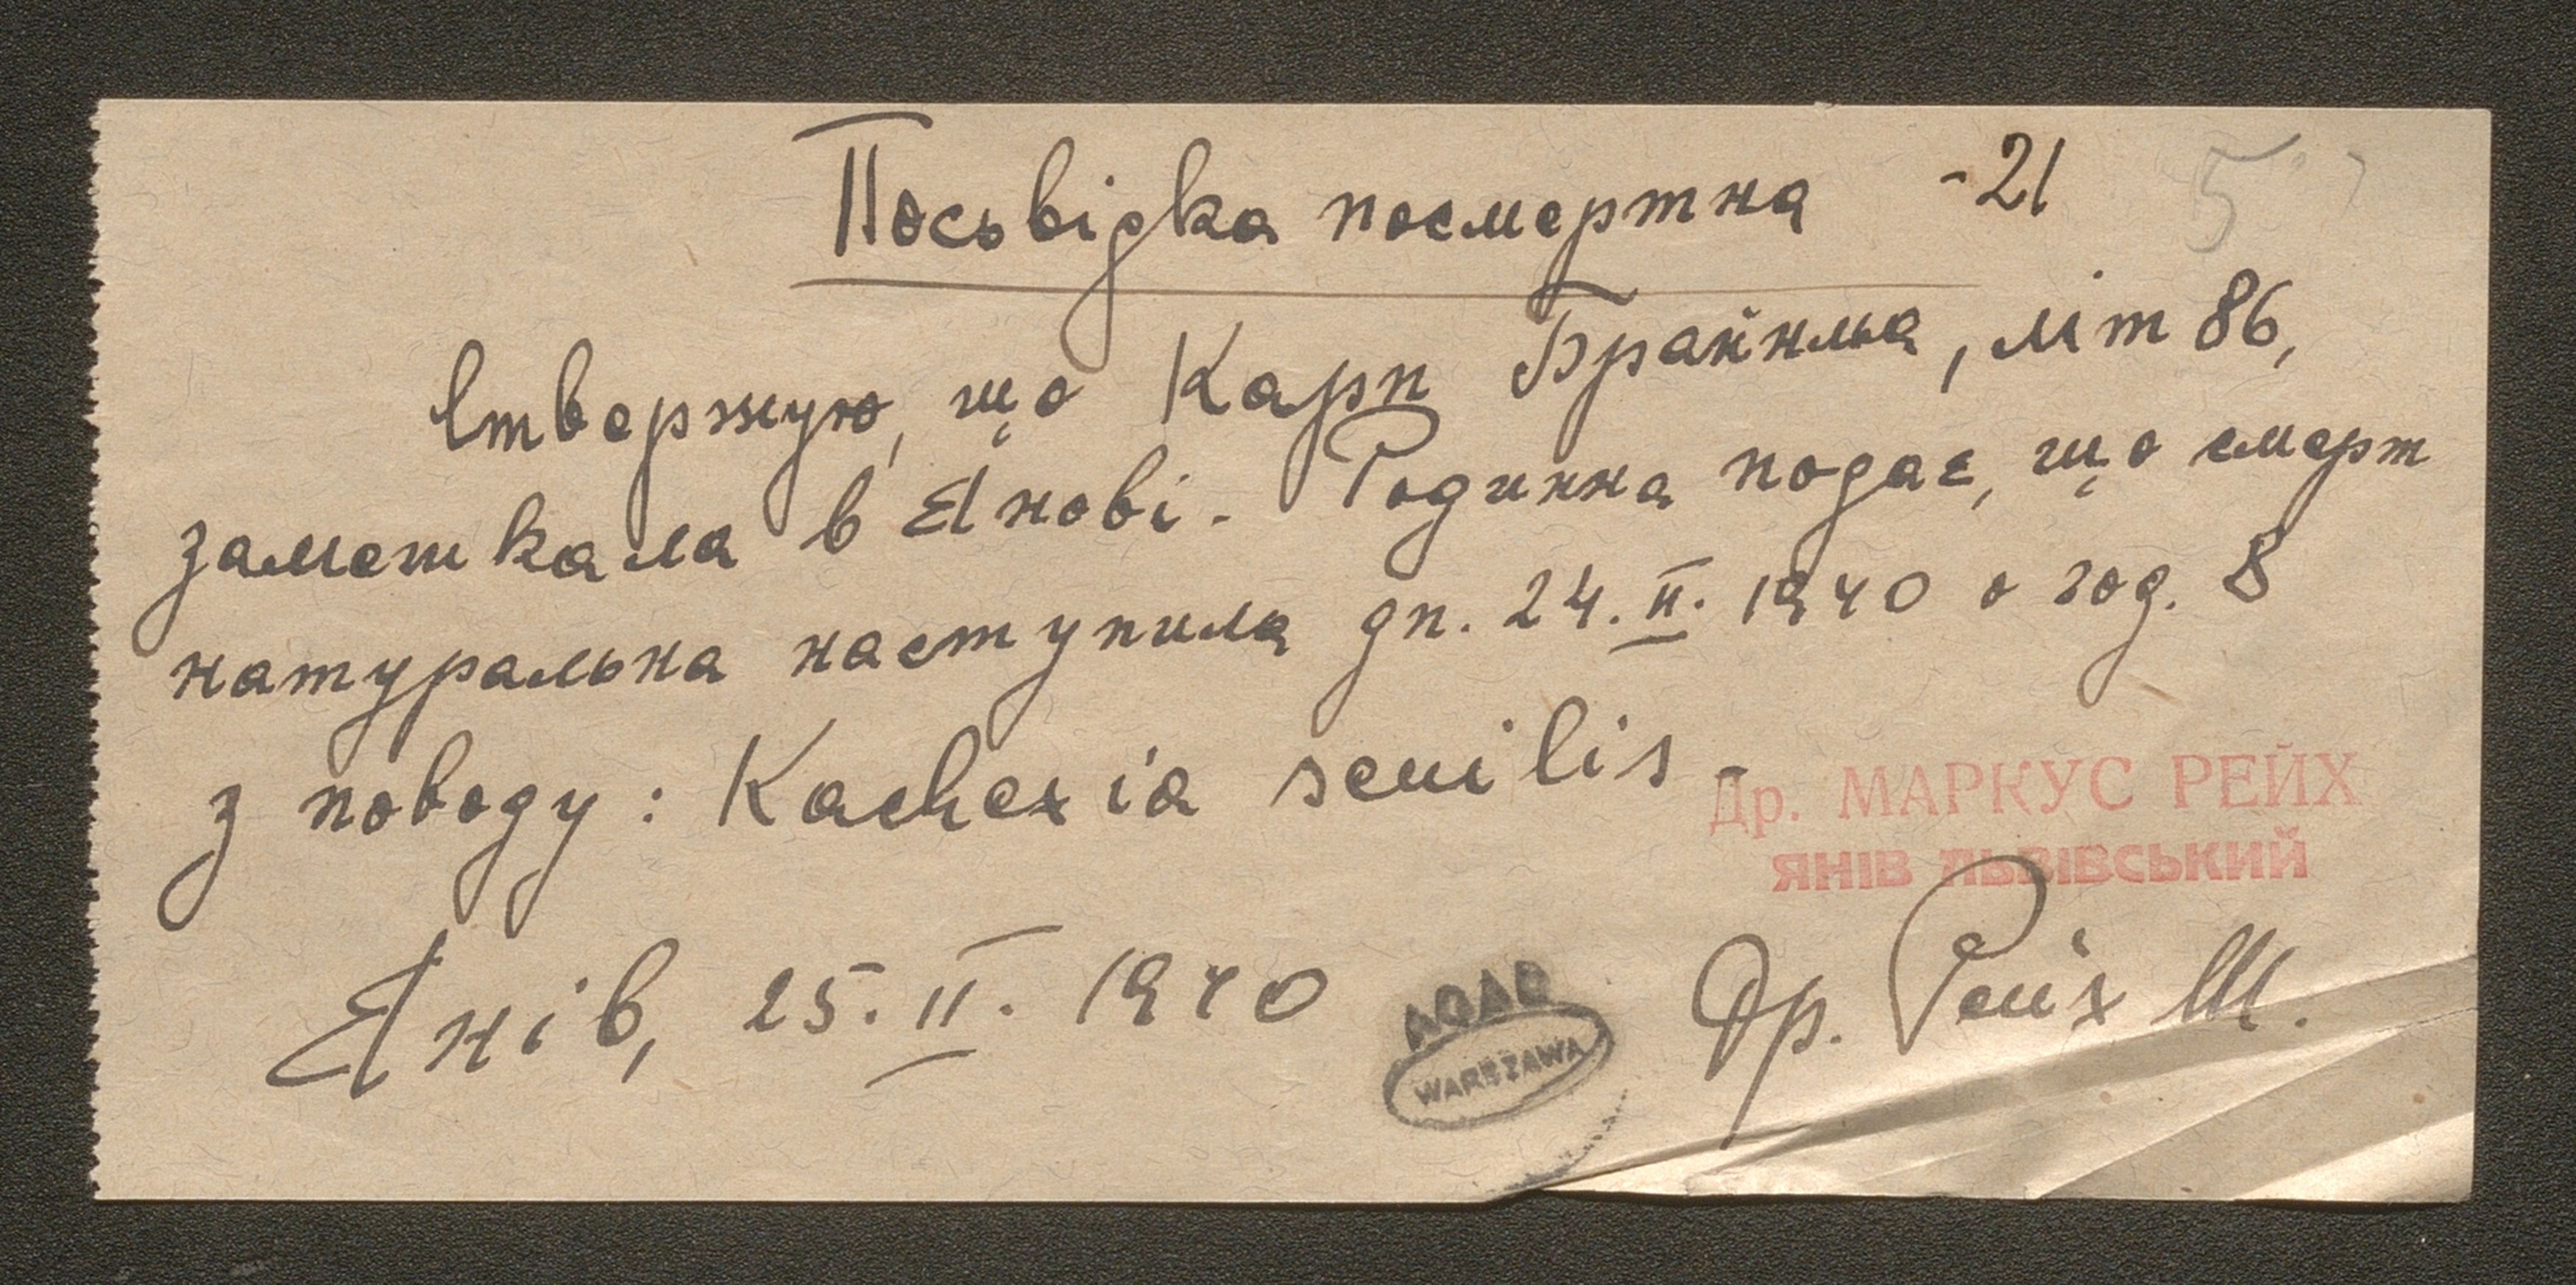 Посьвідка посмертна -21 5
Ствержую, що Карп Брайнля, літ 86,
замешкала в Янові. Родинна подає, що смерт
натуральна наступила дн. 24.II. 1940 о год. 8
з поводу: Kachexia senilis -
Др. МАРКУС РЕЙХ
ЯНІВ ЛЬВІВСЬКИЙ
Янів, 25.II. 1940
Др. Рейх М.
AGAD
WARSZAWA